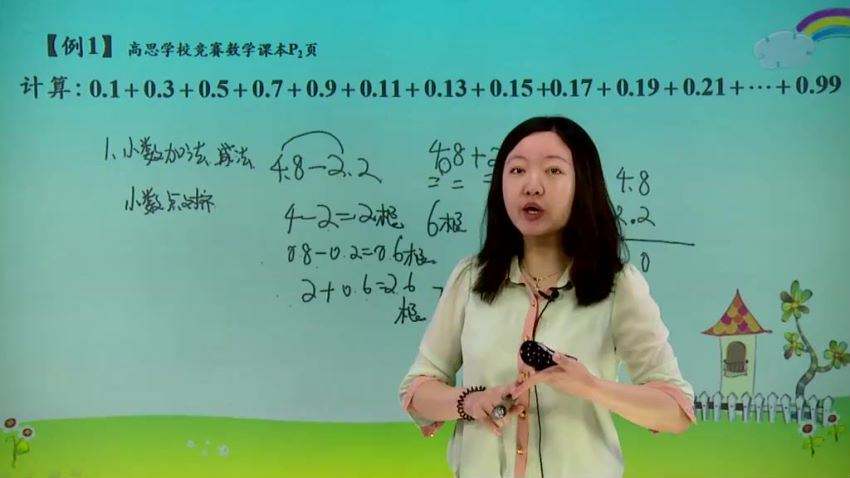 【例1】 高思学校竞赛数学课本P2页
计算：0.1＋0.3＋0.5＋0.7＋0.9＋0.11＋0.13＋0.15＋0.17＋0.19＋0.21＋⋯＋0.99
1、小数加法、减法
小数点对齐
4.8－2.2
4－2＝2根
0.8－0.2＝0.6根
2＋0.6＝2.6
根
4.8＋2
6根
4.8
2.2
0